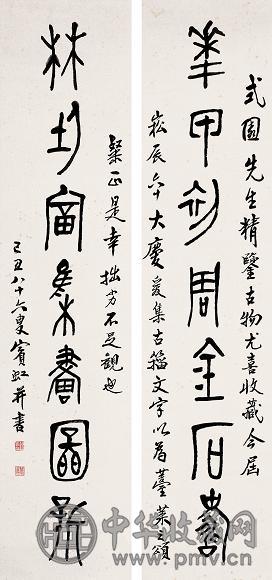 式園先生精鑒古物尤喜收藏今屆
崧辰六十大慶爰集古籀文字以為薹萊之頌
華甲初周金石壽
粲正是幸拙劣不足觀也
林富集書圖新
己丑八十六叟賓虹并書
中华收藏网